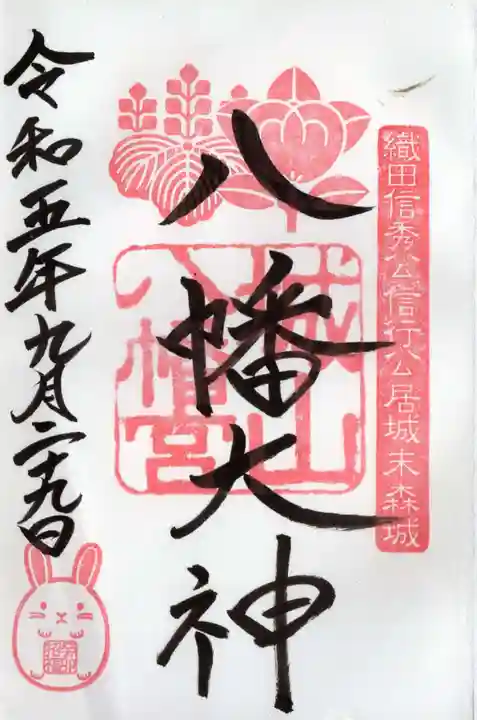 織田信秀公信行公居城末森城
八幡大神
城山
八幡宮
令和五年九月二十九日